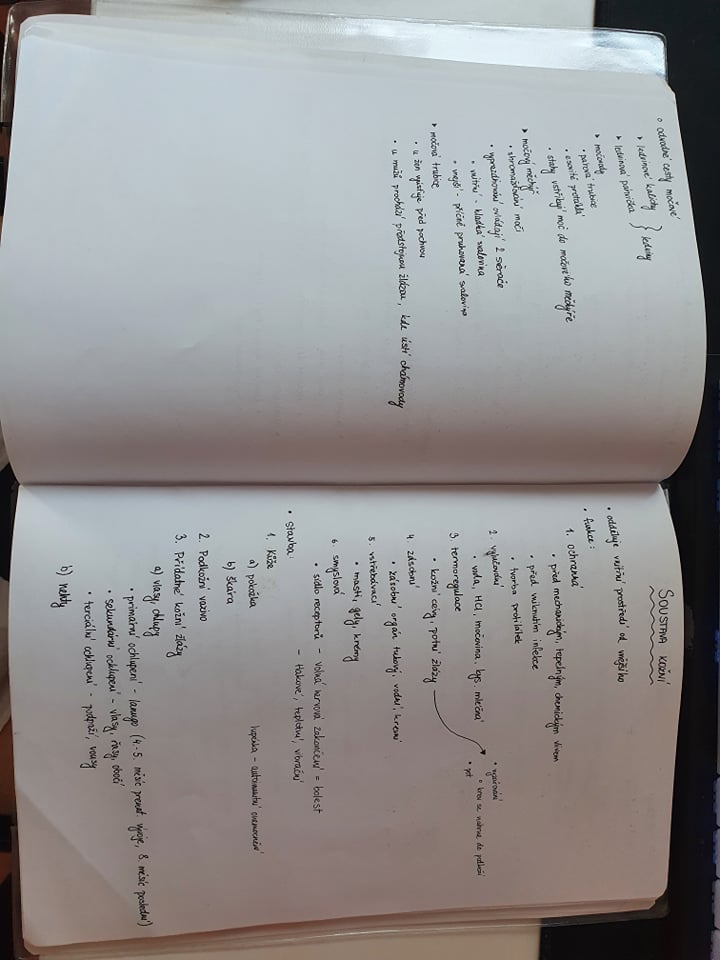 odvodné cesty močové
ledvinové kalichy
ledvinová pánvička
} ledviny
močovody
párová trubice
esovitě protáhlá
stahy vstřikují moč do močového měchýře
močový měchýř
shromažďování moči
vyprazdňování ovládají 2 svěrače
vnitřní - hladká svalovina
vnější - příčně pruhovaná svalovina
močová trubice
u žen vyúsťuje před pochvou
u mužů prochází předstojnou žlázou, kde ústí chámovody
SOUSTAVA KOŽNÍ
odděluje vnitřní prostředí od vnějšího
funkce:
1. ochranná
před mechanickým, tepelným, chemickým vlivem
před vniknutím infekce
tvorba protilátek
2. vylučování
voda, HCl, močovina, kys. mléčná
3. termoregulace
kožní cévy, potní žlázy
vyzařování
krev se nahrne do
pot
4. zásobní
zásobní orgán tukový, vodní, krevní
5. vstřebávací
masti, gely, krémy
6. smyslová
sídlo receptorů - volná nervová zakončení = bolest
- tlakové, teplotní, vibrační
stavba:
1. Kůže
a) pokožka
lupénka - autoimunitní onemocnění
b) škára
2. Podkožní vazivo
3. Přídatné kožní žlázy
a) vlasy, chlupy
primární ochlupení - lanugo (4.-5. měsíc prenat. vývoje, 8. měsíc poslední)
sekundární ochlupení - vlasy, řasy, obočí
terciální ochlupení - podpaží, vousy
b) nehty